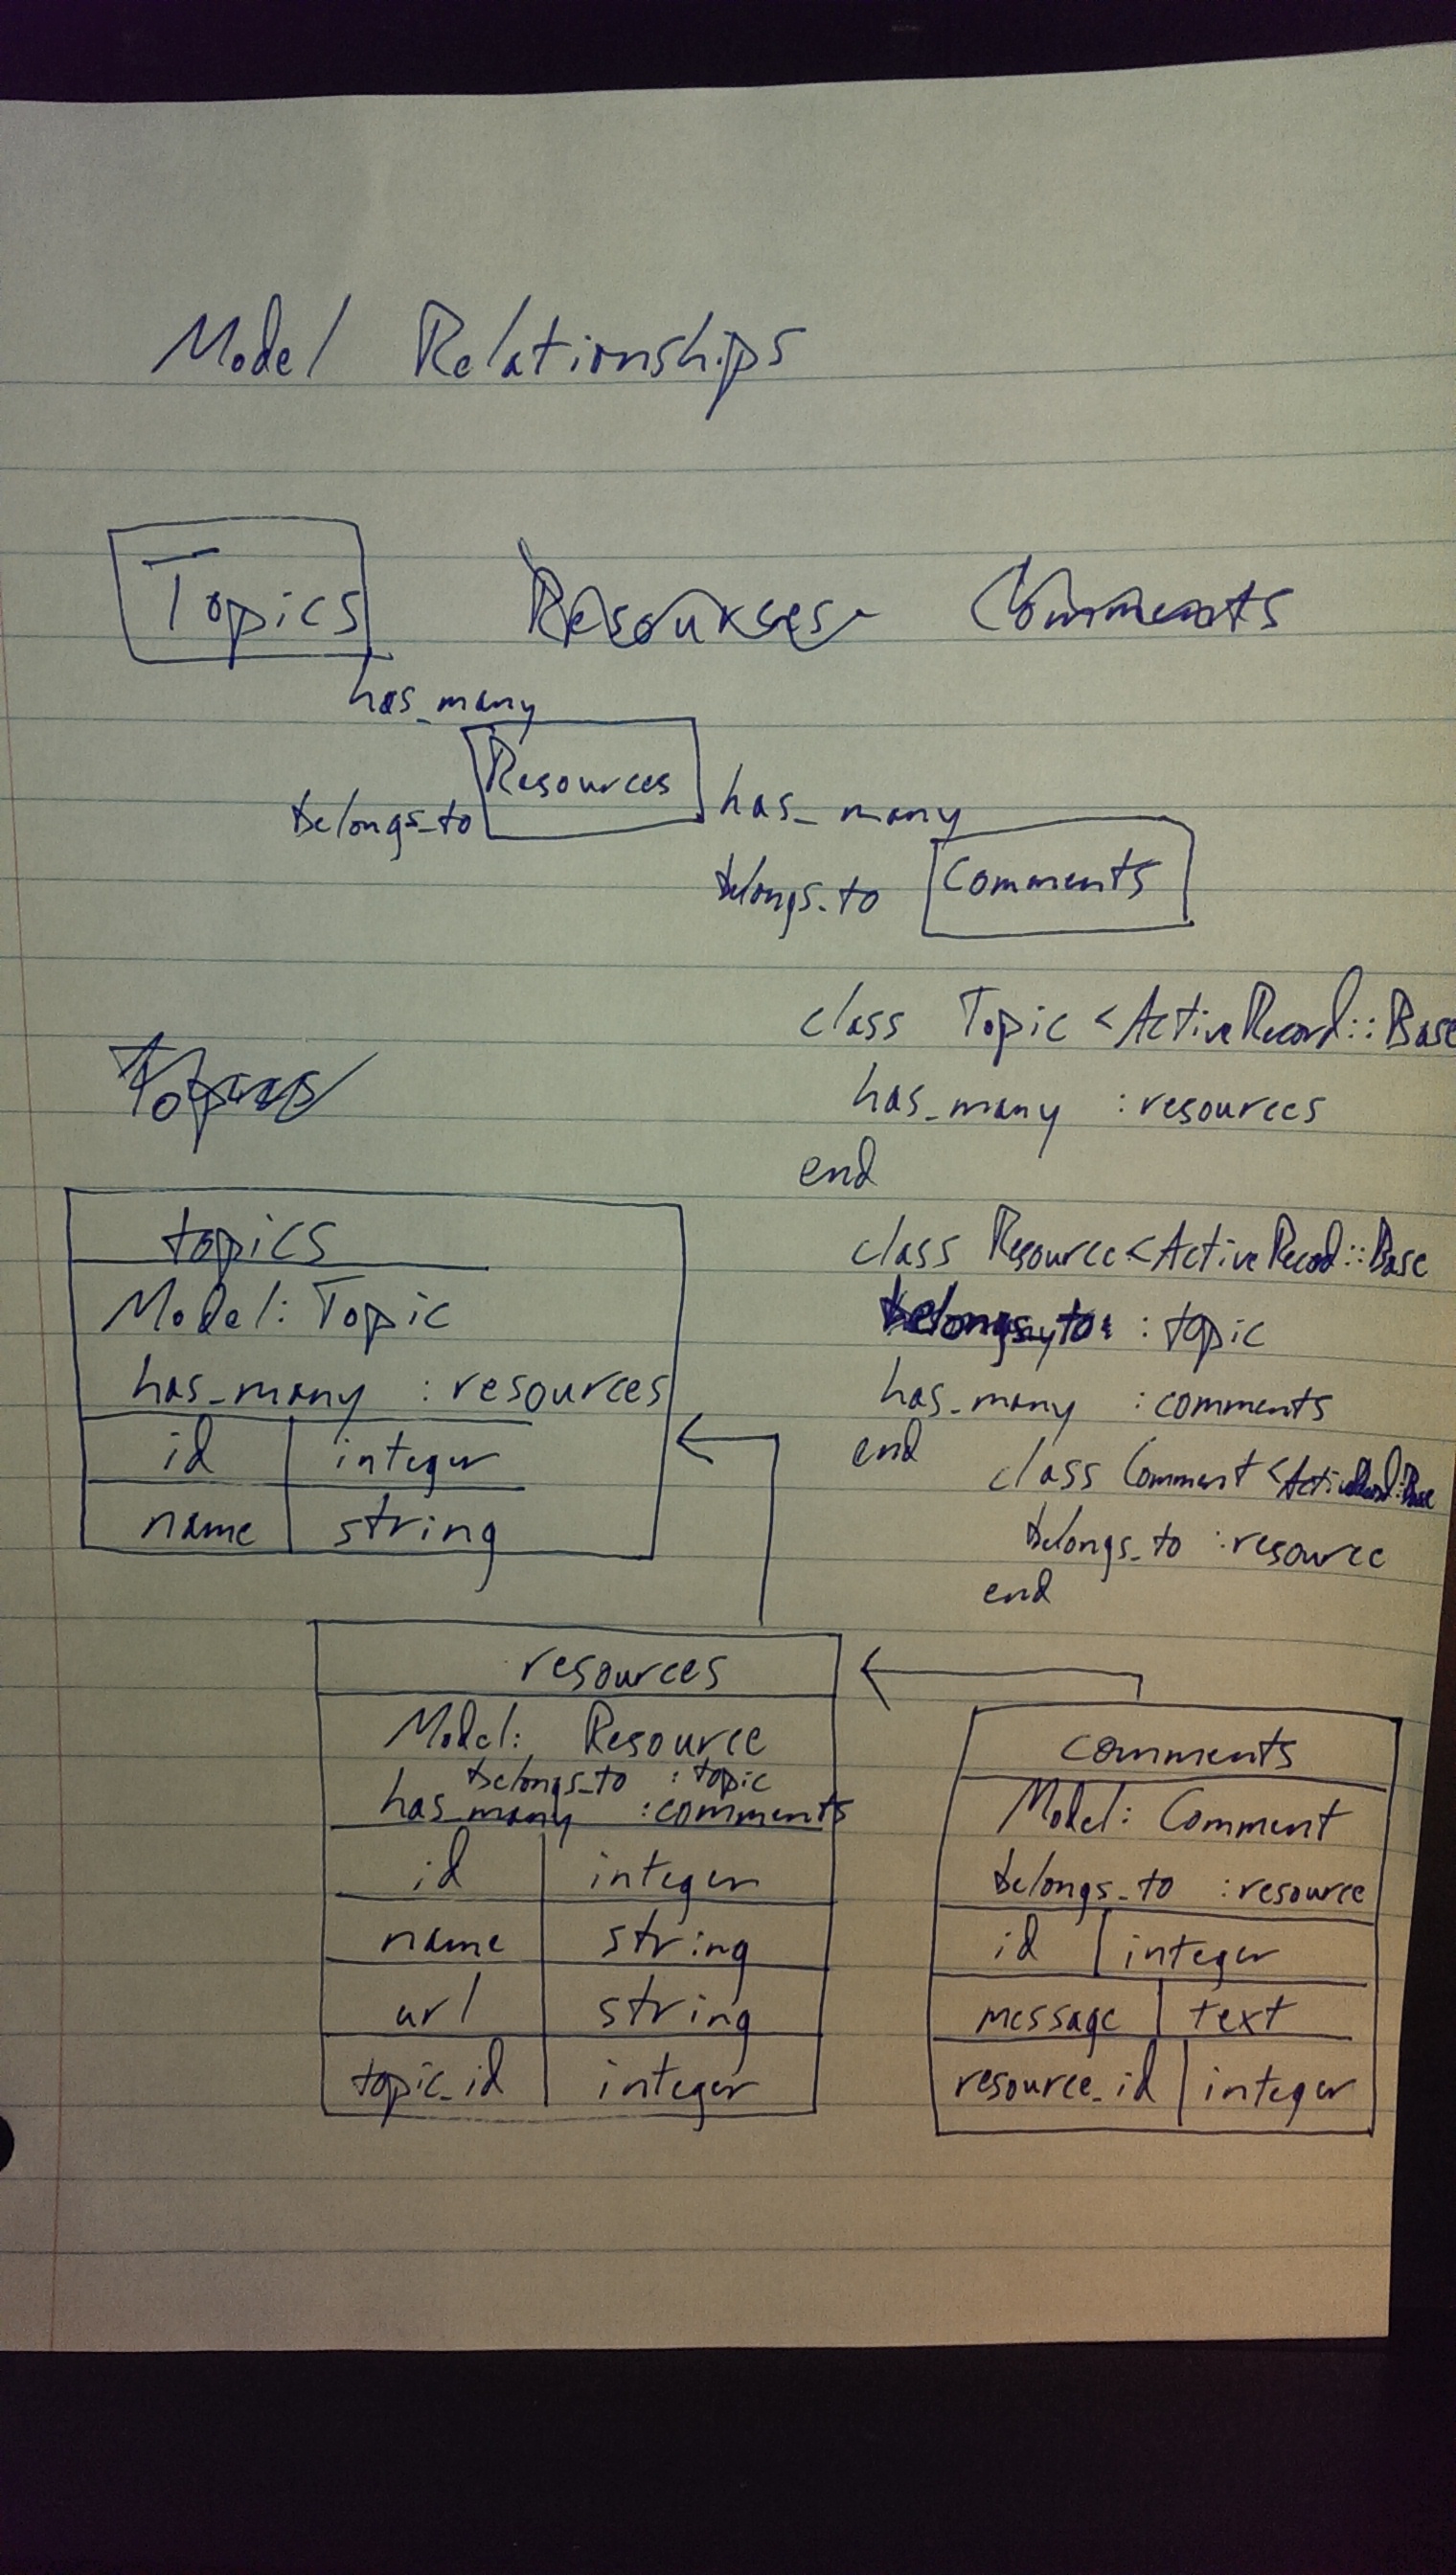 Model Relationships
Topics Resourses Comments
has_many
Resources
belongs_to has_many
belongs_to Comments
class Topic < ActiveRecord::Base
has_many :resources
end
class Resource < ActiveRecod::Base
belongs_to : topic
has_many :comments
end
class Comment < ActiveRecord::Base
belongs_to :resource
end
topics
Model: Topic
has_many :resources
id integer
name string
resources
Model: Resource
belongs_to :topic
has_many :comments
id integer
name string
url string
topic_id integer
comments
Model: Comment
belongs_to :resource
id integer
message text
resource_id integer